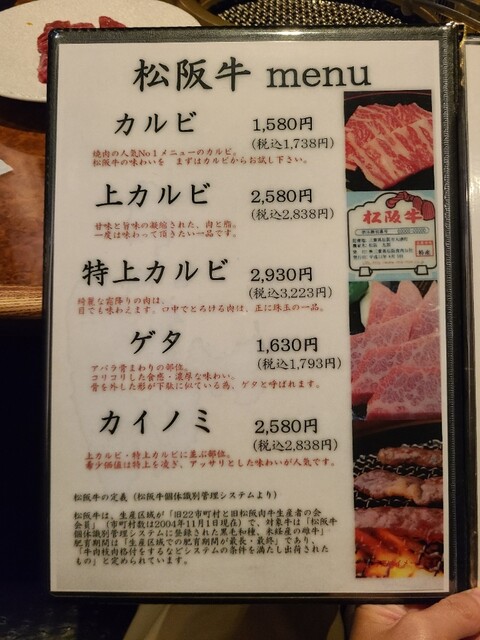 松阪牛 menu
カルビ 1,580円
(税込1,738円)
焼肉の人気No1メニューのカルビ。
松阪牛の味わいを まずはカルビからお試し下さい。
上カルビ 2,580円
(税込2,838円)
甘味と旨味の凝縮された、肉と脂。
一度は味わって頂きたい一品です。
特上カルビ 2,930円
(税込3,223円)
綺麗な霜降りの肉は、
目でも味わえます。口中でとろける肉は、正に珠玉の一品。
ゲタ 1,630円
(税込1,793円)
アバラ骨まわりの部位。
コリコリした食感・濃厚な味わい。
骨を外した形が下駄に似ている為、ゲタと呼ばれます。
カイノミ 2,580円
(税込2,838円)
上カルビ・特上カルビに並ぶ部位。
希少価値は特上を凌ぎ、アッサリとした味わいが人気です。
松阪牛の定義（松阪牛個体識別管理システムより）
松阪牛は、生産区域が「旧22市町村と旧松阪肉牛生産者の会
会員」（市町村数は2004年11月1日現在）で、対象牛は「松阪牛
個体識別管理システムに登録された黒毛和種、未経産の雌牛」
肥育期間は「生産区域での肥育期間が最長・最終」であり、
「牛肉枝肉格付をするなどシステムの条件を満たし出荷された
もの」と定められています。
松阪牛